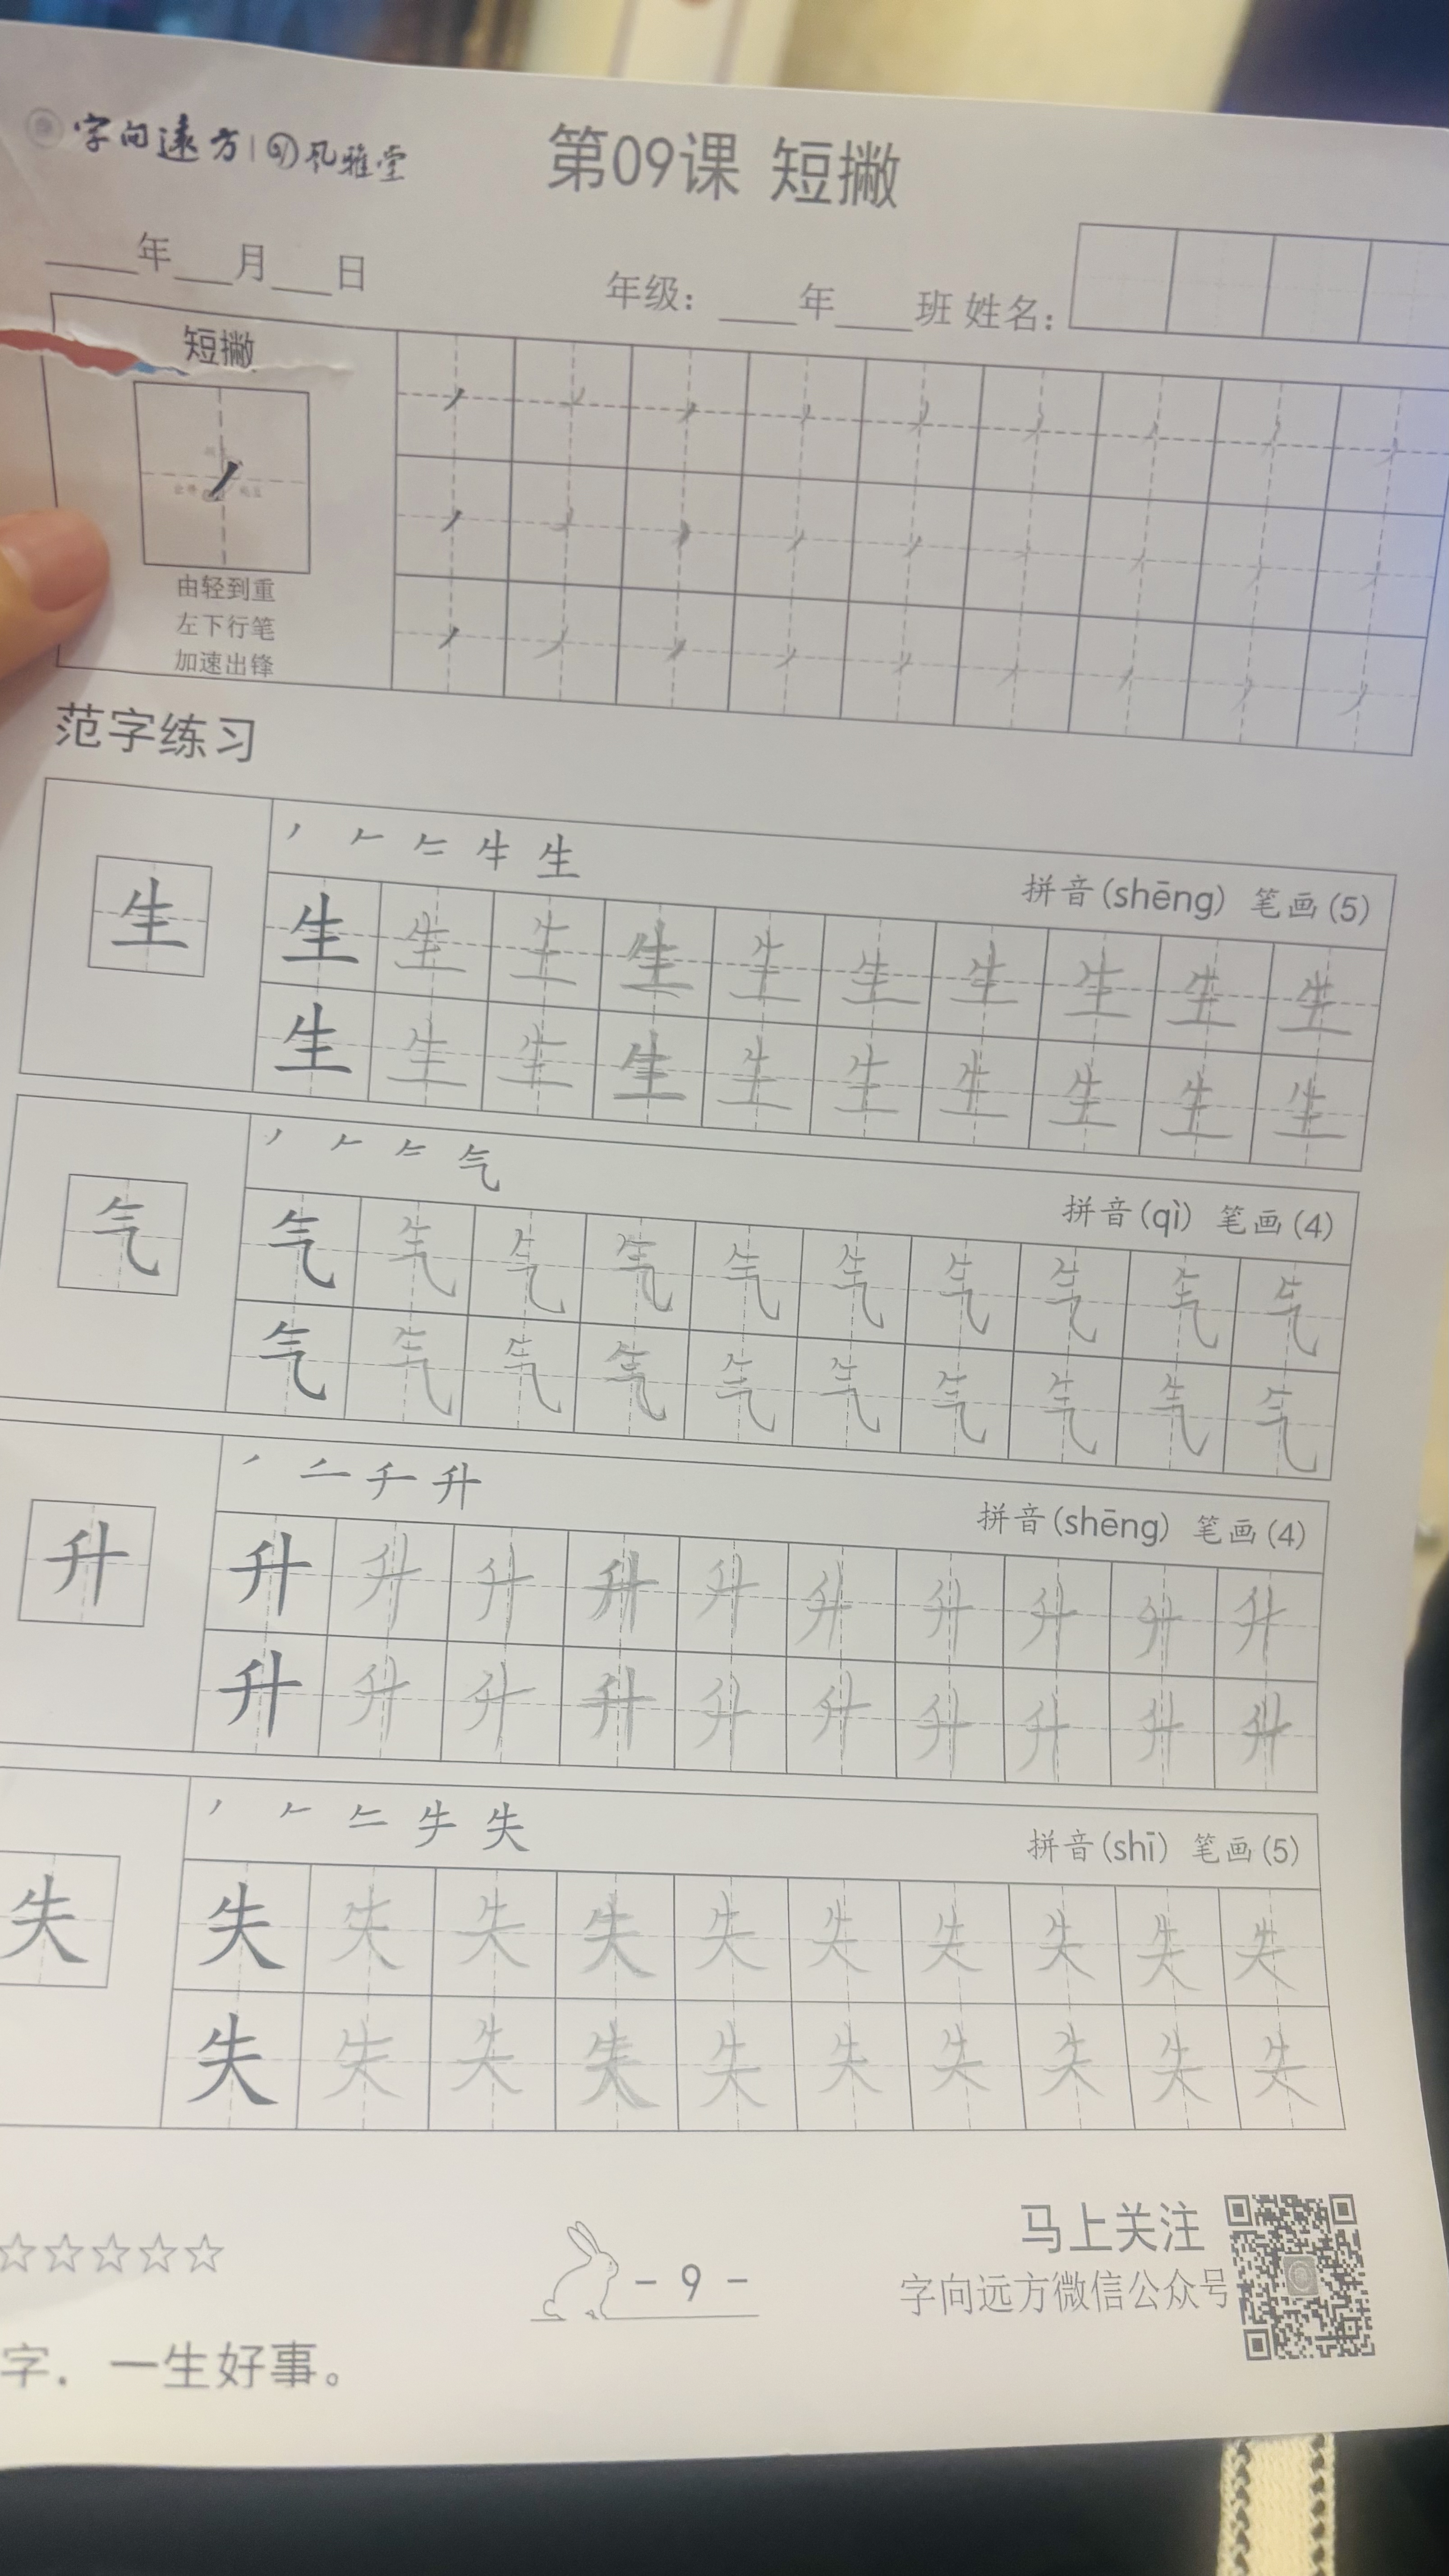 字向遠方 风雅堂
第09课 短撇
年 月 日
年级： 年 班 姓名：
短撇
由轻到重
左下行笔
加速出锋
范字练习
生 牛 生
拼音(shēng) 笔画(5)
生 生 生 生 生 生 生 生 生 生
生 生 生 生 生 生 生 生 生 生
气 气
拼音(qì) 笔画(4)
气 气 气 气 气 气 气 气 气 气
气 气 气 气 气 气 气 气 气 气
升 千 升
拼音(shēng) 笔画(4)
升 升 升 升 升 升 升 升 升 升
升 升 升 升 升 升 升 升 升 升
失 失
拼音(shī) 笔画(5)
失 失 失 失 失 失 失 失 失 失
失 失 失 失 失 失 失 失 失 失
☆☆☆☆☆
- 9 -
马上关注
字向远方微信公众号
字．一生好事。